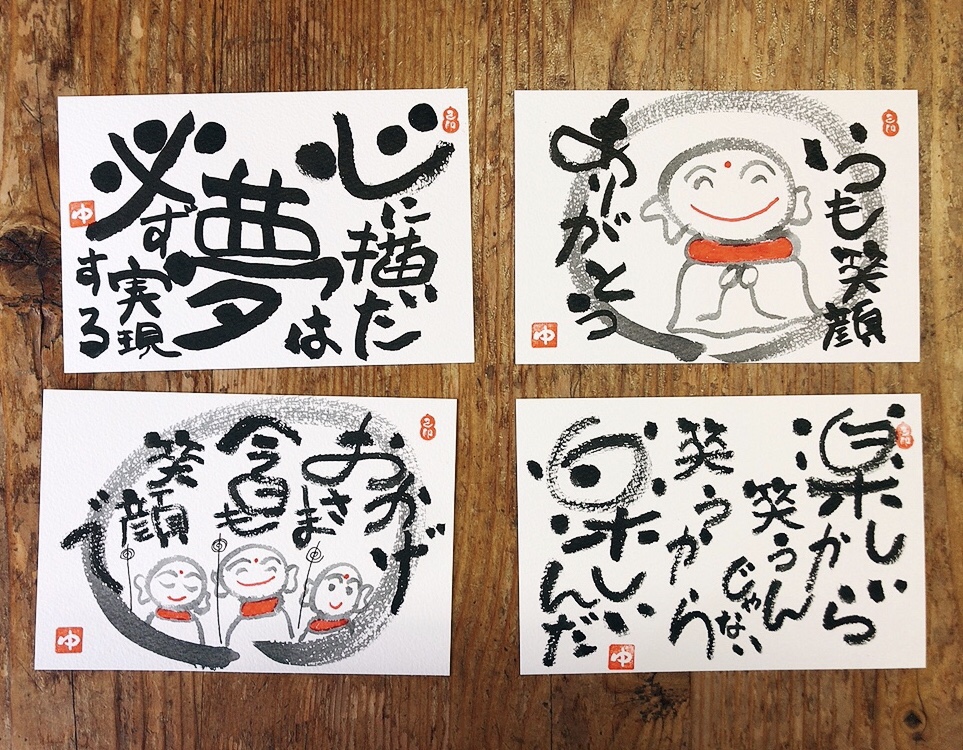 心に描いた
夢は
必ず
実現
する
いつも笑顔
ありがとう
おかげ
さま
今日も
笑顔
で
楽しいから
笑うん
じゃない
笑うから
楽しいんだ